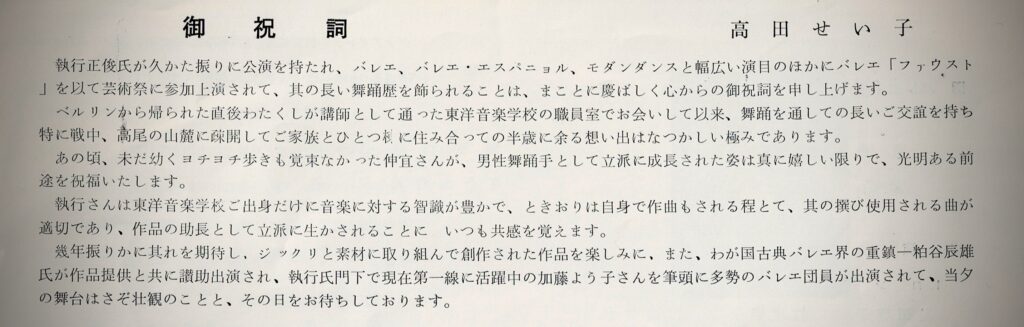 御祝詞
高田せい子
執行正俊氏が久かた振りに公演を持たれ、バレエ、バレエ・エスパニョル、モダンダンスと幅広い演目のほかにバレエ「ファウスト
」を以て芸術祭に参加上演されて、其の長い舞踊歴を飾られることは、まことに慶ばしく心からの御祝詞を申し上げます。
ベルリンから帰られた直後わたくしが講師として通った東洋音楽学校の職員室でお会いして以来、舞踊を通しての長いご交誼を持ち
特に戦中、高尾の山麓に疎開してご家族とひとつ棟に住み合っての半歳に余る想い出はなつかしい極みであります。
あの頃、未だ幼くヨチヨチ歩きも覚束なかった伸宜さんが、男性舞踊手として立派に成長された姿は真に嬉しい限りで、光明ある前
途を祝福いたします。
執行さんは東洋音楽学校ご出身だけに音楽に対する智識が豊かで、ときおりは自身で作曲もされる程とて、其の撰び使用される曲が
適切であり、作品の助長として立派に生かされることに　いつも共感を覚えます。
幾年振りかに其れを期待し、ジックリと素材に取り組んで創作された作品を楽しみに、また、わが国古典バレエ界の重鎮―粕谷辰雄
氏が作品提供と共に讃助出演され、執行氏門下で現在第一線に活躍中の加藤よう子さんを筆頭に多勢のバレエ団員が出演されて、当夕
の舞台はさぞ壮観のことと、その日をお待ちしております。